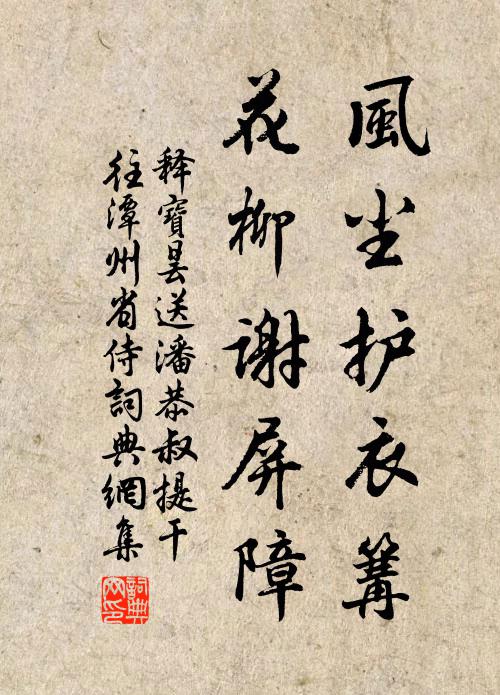 風尘护衣篝
花柳谢屏障
释寶曇送潘恭叔提干
往潭州省侍詞典網集
詞典
网印